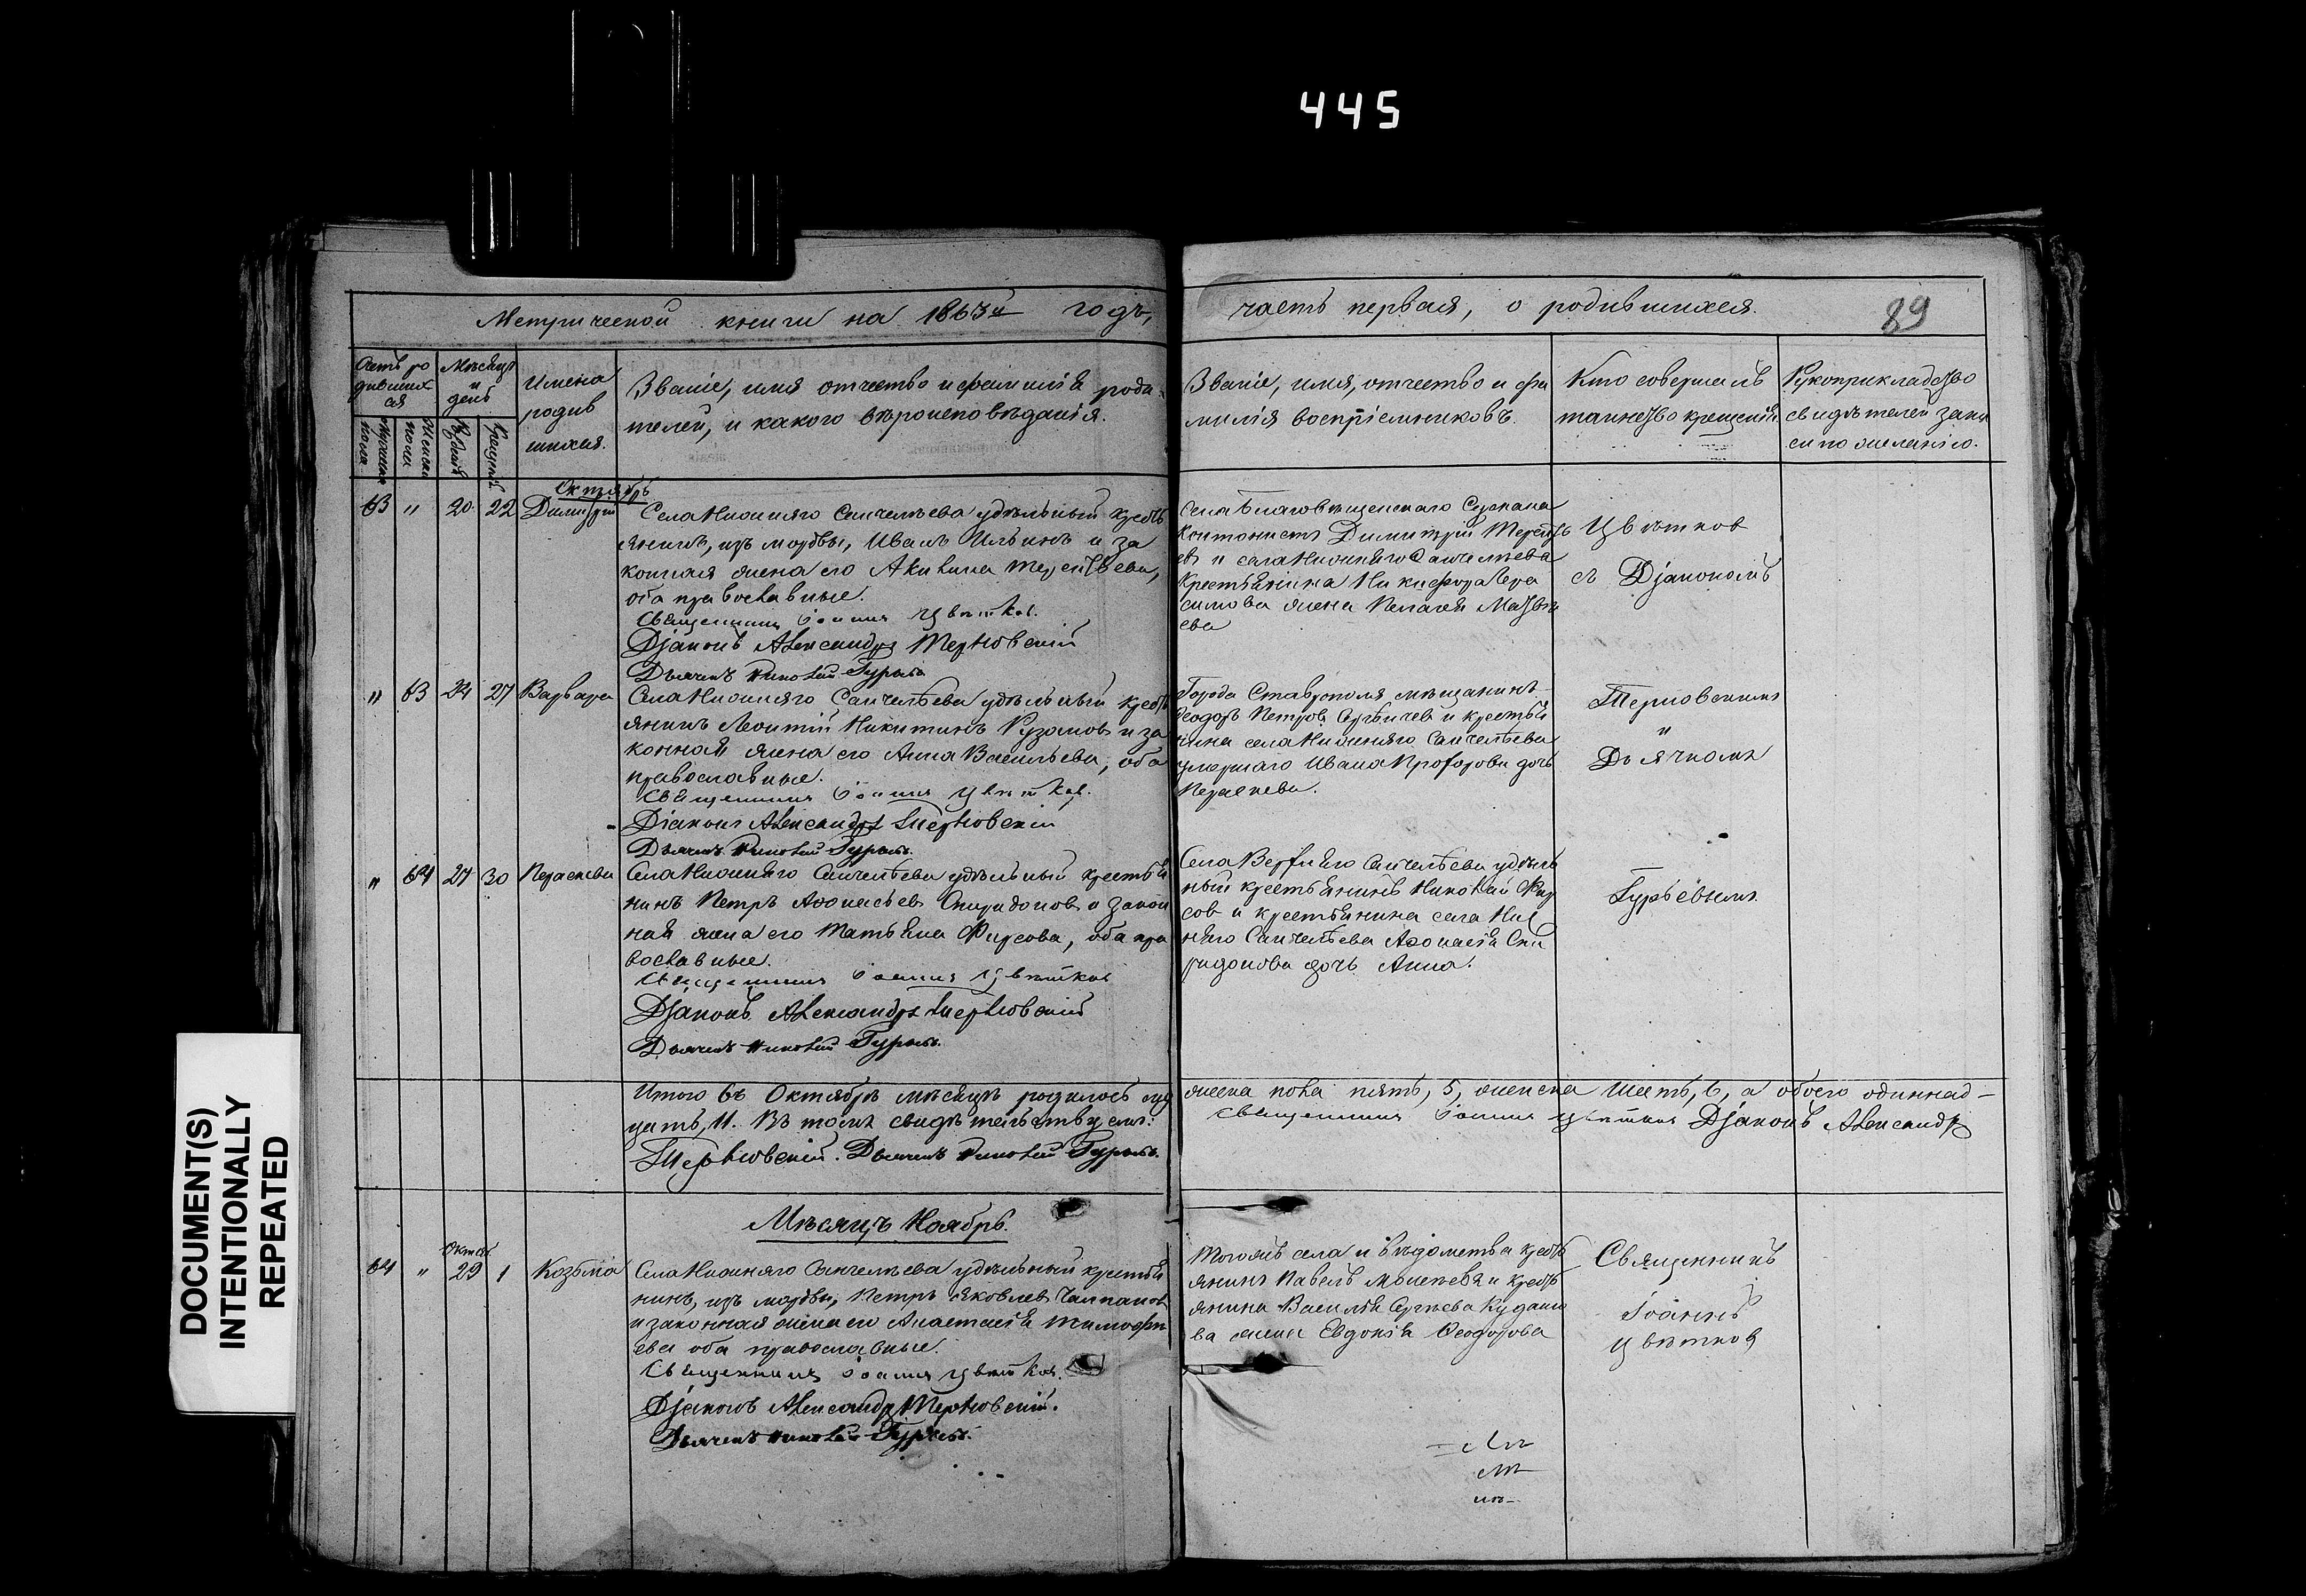 445
89
Метрической книги на 1863й годъ,
часть первая, о родившихся.
Счетъ ро
дивших
ся
Мѣсяцъ
и
день
Имена
родив
шихся.
Званіе, имя отчество и фамилія роди-
телей, и какого вѣроисповѣданія.
Званіе, имя, отчество и фа
милія воспріемниковъ.
Кто совершалъ
таинство крещенія.
Рукоприкладство
свидѣтелей запи
си по желанію.
мужеска
пола
женска
пола
Рожденія
Крещенія
Октябрь
63 " 20 22 Димитрій
Села Нижняго Санчелѣева удѣльный кресть
янинъ, изъ мордвы, Иванъ Ильинъ и за
конная жена его Акилина Терентьева,
оба православные.
Священникъ Іоаннъ Цвѣтков.
Діаконъ Александръ Терновскій
Дьячекъ Николай Гурьевъ
Села Благовѣщенскаго Сускана
Кантонистъ Димитрій Терентье
въ и села Нижняго Санчелѣева
Крестьянина Никифора Гера
симова жена Пелагея Матвѣ
ева
Цвѣтков
съ Діакономъ
" 63 24 27 Варвара
Села Нижняго Санчелѣева удѣльный кресть
янинъ Леонтій Никитинъ Рузановъ и за
конная жена его Анна Васильева, оба
православные.
Священникъ Іоаннъ Цвѣтков.
Діаконъ Александръ Терновскій
Дьячекъ Николай Гурьевъ.
Города Ставрополя мѣщанинъ
Ѳеодоръ Петровъ и крестья
нина села Нижняго Санчелѣева
умершаго Ивана Прохорова дочь
Параскева.
Терновскимъ
"
Дьячкомъ
" 64 27 30 Параскева
Села Нижняго Санчелѣева удѣльный крестья
нинъ Петръ Аѳонасьевъ Спиридоновъ и закон
ная жена его Татьяна Фирсова, оба пра
вославные.
Священникъ Іоаннъ Цвѣтков
Діаконъ Александръ Терновскій
Дьячекъ Николай Гурьевъ.
Села Верхняго Санчелѣева удѣль
ный крестьянинъ Николай Фир
сов и крестьянина села Ниж
няго Санчелѣева Аѳонасія Спи
ридонова дочь Анна.
Гурьевымъ
Итого въ Октябрѣ мѣсяцѣ родилось му
жеска пола пять, 5, женска шесть, 6, а обоего одиннад-
цать, 11. Въ томъ свидѣтельствуемъ:
Священникъ Іоаннъ Цвѣтковъ Діаконъ Александръ
Терновскій. Дьячекъ Николай Гурьевъ.
Мѣсяцъ Ноябрь.
Октяб.
64 " 29 1 Козьма
Села Нижняго Санчелѣева удѣльный крестья
нинъ, изъ мордвы, Петръ Яковлевъ Чалпановъ
и законная жена его Анастасія Тимофѣ
ева оба православные.
Священникъ Іоаннъ Цвѣтков.
Діаконъ Александръ Терновскій.
Дьячекъ Николай Гурьевъ.
Тогожъ села и вѣдомства кресть
янинъ Павелъ Моисеевъ и кресть
янина Василія Сергѣева Кудашо
ва жена Евдокія Ѳеодорова
Священникъ
Іоаннъ
Цвѣтков
DOCUMENT(S)
INTENTIONALLY
REPEATED